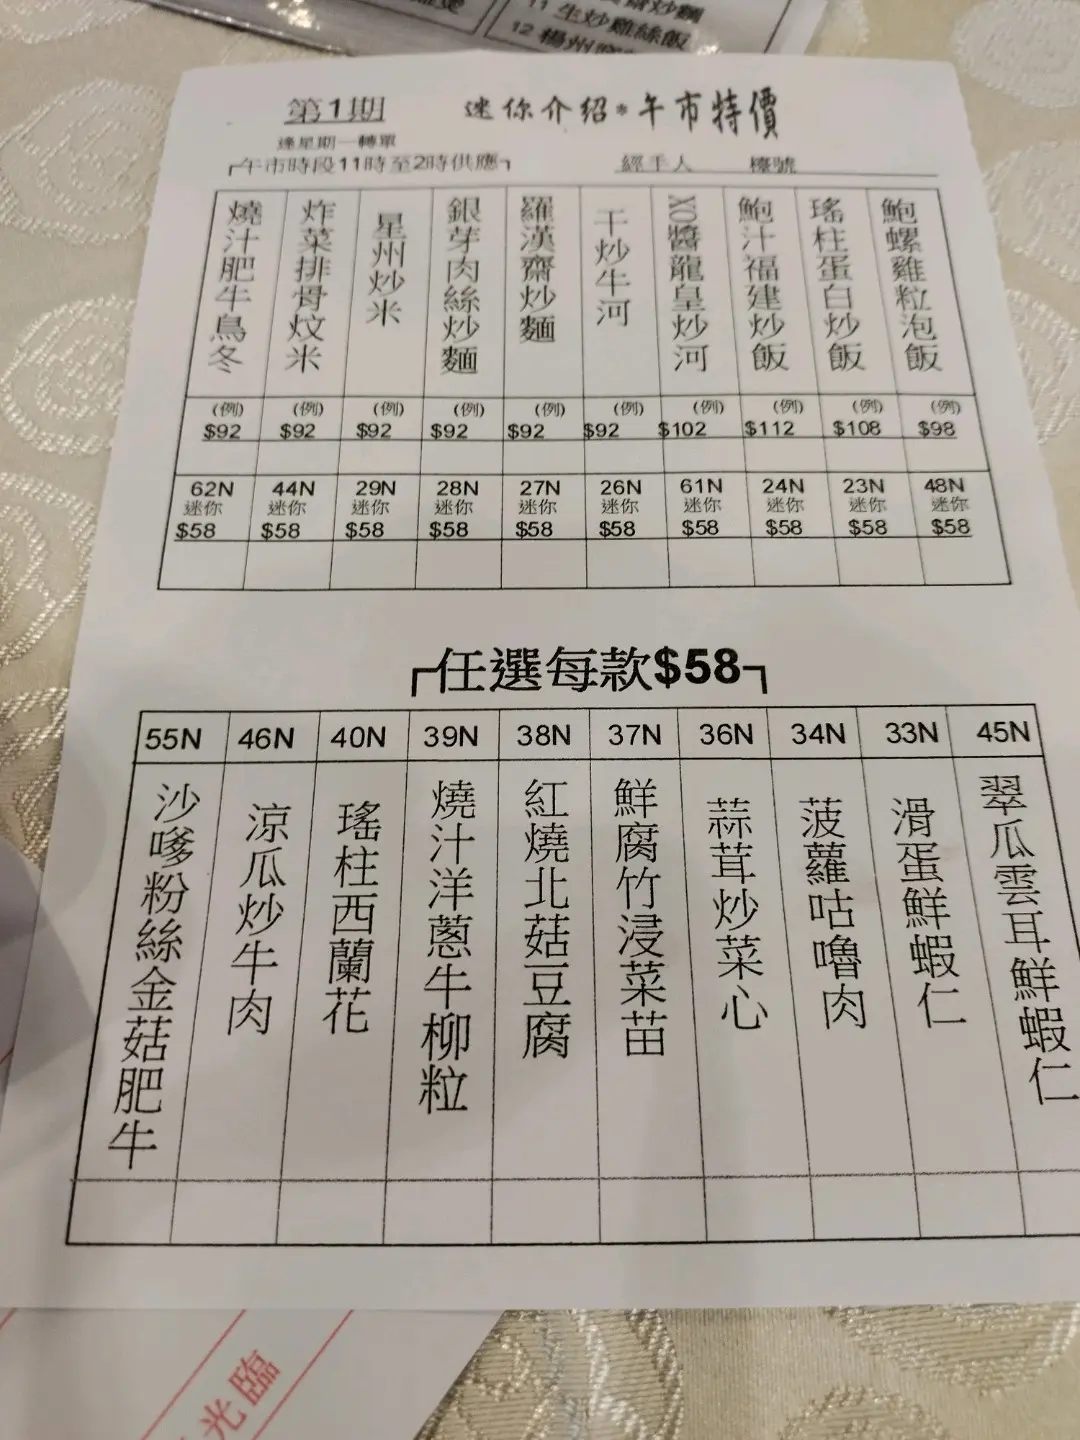 11 生炒雞絲飯
12 楊州
第1期
迷你介紹*午市特價
逢星期一轉單
「午市時段11時至2時供應」
經手人 檯號
燒汁肥牛烏冬
炸菜排骨炆米
星州炒米
銀芽肉絲炒麵
羅漢齋炒麵
干炒牛河
XO醬龍皇炒河
鮑汁福建炒飯
瑤柱蛋白炒飯
鮑螺雞粒泡飯
(例) (例) (例) (例) (例) (例) (例) (例) (例) (例)
$92 $92 $92 $92 $92 $92 $102 $112 $108 $98
62N 44N 29N 28N 27N 26N 61N 24N 23N 48N
迷你 迷你 迷你 迷你 迷你 迷你 迷你 迷你 迷你 迷你
$58 $58 $58 $58 $58 $58 $58 $58 $58 $58
「任選每款$58」
55N 46N 40N 39N 38N 37N 36N 34N 33N 45N
沙嗲粉絲金菇肥牛
涼瓜炒牛肉
瑤柱西蘭花
燒汁洋蔥牛柳粒
紅燒北菇豆腐
鮮腐竹浸菜苗
蒜茸炒菜心
菠蘿咕嚕肉
滑蛋鮮蝦仁
翠瓜雲耳鮮蝦仁
光臨